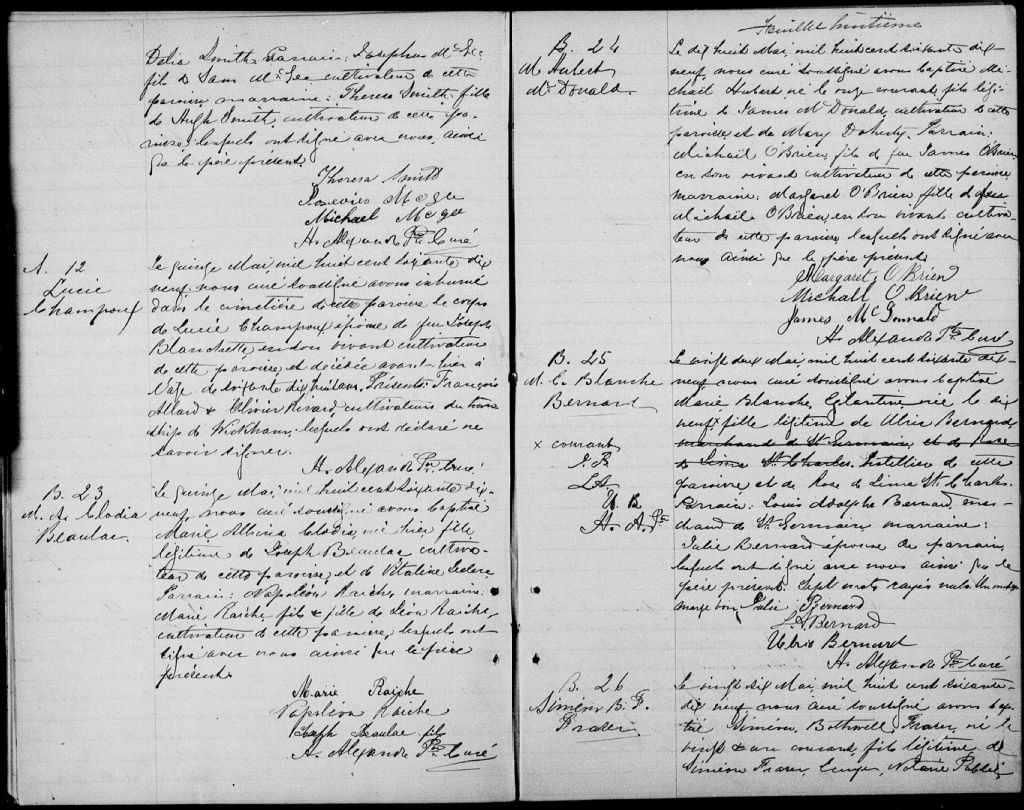 Delia Smith. Parrain: Josephus McGee
fils de Sam McGee cultivateur de cette
paroisse, marraine: Theresa Smith fille
de Hugh Smith, cultivateur de cette pa-
roisse, lesquels ont signé avec nous, ainsi
que le père présent.
Theresa Smith
McGee
Michael McGee
A. Alexandre Ptre Curé
S. 12
Lucie
Champoux
Le quinze Mai, mil huit cent soixante dix
neuf, nous curé soussigné avons inhumé
dans le cimetière de cette paroisse le corps
de Lucie Champoux, épouse de feu Joseph
Blanchette, en son vivant cultivateur
de cette paroisse, et décédée avant-hier à
l'âge de soixante dix huit ans. Présents: François
Allard & Olivier Rivard, cultivateurs du town
ship de Wickham, lesquels ont déclaré ne
savoir signer.
A. Alexandre Ptre Curé
B. 23
M. A. Clodia
Beaulac.
Le quinze Mai, mil huit cent soixante dix-
neuf, nous curé soussigné avons baptisé
Marie Albina Clodia, née hier, fille
légitime de Joseph Beaulac, cultiva-
teur de cette paroisse, et de Vitaline Leclerc.
Parrain: Napoléon Raiche, marraine:
Marie Raiche, fils & fille de Léon Raiche,
cultivateur de cette paroisse, lesquels ont
signé avec nous ainsi que le père
présent.
Marie Raiche
Napoléon Raiche
Joseph Beaulac fils
A. Alexandre Ptre Curé
Feuillet huitième
B. 24
M. Hubert
McDonald
Le dix huit Mai, mil huit cent soixante dix
neuf, nous curé soussigné avons baptisé Mi-
chaïl Hubert, né le onze courant, fils légi-
time de James McDonald, cultivateur de cette
paroisse et de Mary Doherty. Parrain:
Michaïl O'Brien, fils de feu James O'Brien,
en son vivant cultivateur de cette paroisse,
marraine: Margaret O'Brien fille de feu
Michaïl O'Brien, en son vivant cultiva-
teur de cette paroisse, lesquels ont signé avec
nous ainsi que le père présent.
Margaret O'Brien
Michall O'Brien
James McDonnald
A. Alexandre Ptre Curé
B. 25
M. E. Blanche
Bernard
Le vingt deux Mai, mil huit cent soixante dix-
neuf, nous curé soussigné avons baptisé
Marie Blanche née le dix
neuf x fille légitime de Ulric Bernard,
marchand de St Germain, et de Rose
de Lima St Charles. hôtellier de cette
paroisse et de Rose de Lima St Charles.
Parrain: Louis Adolphe Bernard, mar-
chand de St Germain, marraine:
Julie Bernard épouse du parrain,
lesquels ont signé avec nous ainsi que le
père présent. Sept mots rayés nuls. Un mot en
marge bon. Julie Bernard
L. A. Bernard
Ulric Bernard
A. Alexandre Ptre Curé
x courant
J. B.
L. A.
U. B.
A. A. Ptre
B. 26
Siméon B. F.
Fraser.
Le vingt six Mai, mil huit cent soixante-
dix neuf, nous curé soussigné avons bap-
tisé Siméon, Bothwell Fraser, né le
vingt & un courant, fils légitime de
Siméon Fraser, Notaire Public,